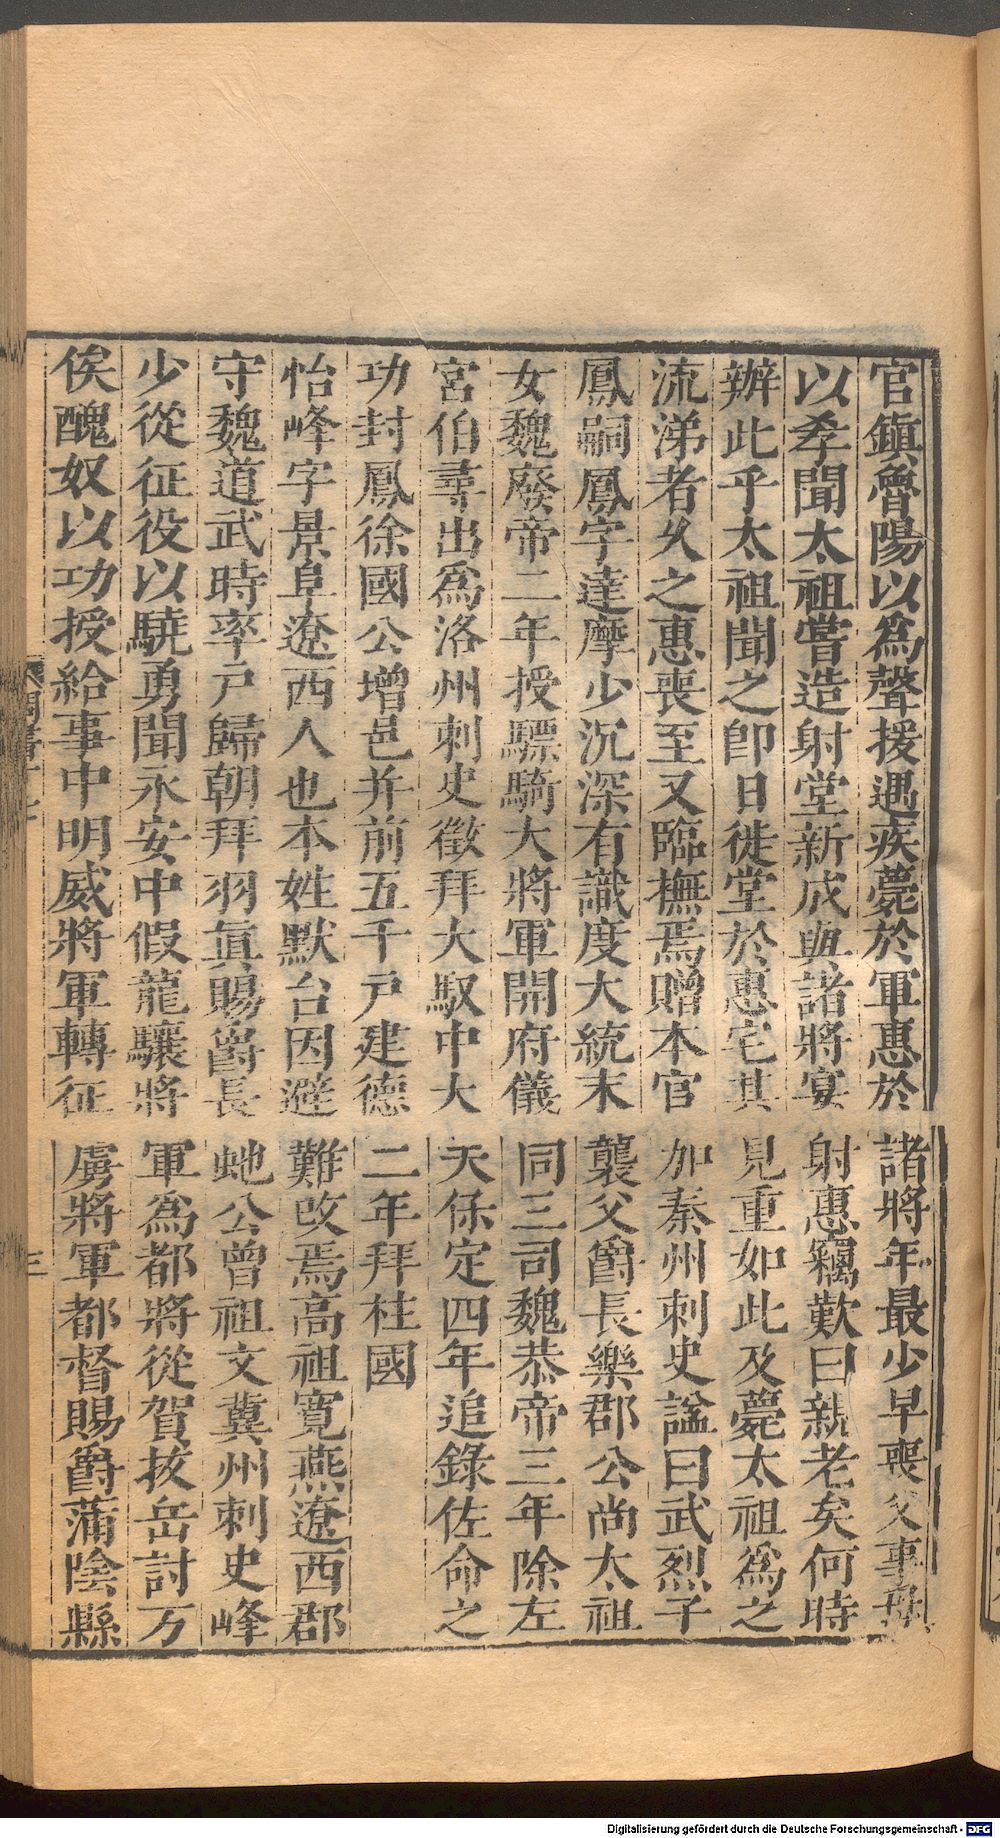 官鎮魯陽以爲聲援遇疾薨於軍惠於諸將年最少早喪父事母
以孝聞太祖嘗造射堂新成與諸將宴射惠竊歎曰親老矣何時
辦此乎太祖聞之卽日徙堂於惠宅其見重如此及薨太祖爲之
流涕者久之惠喪至又臨撫焉贈本官加秦州刺史謚曰武烈子
鳳嗣鳳字達摩少沉深有識度大統末襲父爵長樂郡公尚太祖
女魏廢帝二年授驃騎大將軍開府儀同三司魏恭帝三年除左
宮伯尋出爲洛州刺史徵拜大馭中大夭保定四年追錄佐命之
功封鳳徐國公增邑并前五千戸建德二年拜柱國
怡峰字景阜遼西人也本姓默台因避難改焉高祖寛燕遼西郡
守魏道武時率戸歸朝拜羽眞賜爵長虵公曾祖文冀州刺史峰
少從征役以驍勇聞永安中假龍驤將軍爲都將從賀拔岳討万
俟醜奴以功授給事中明威將軍轉征虜將軍都督賜爵蒲陰縣
三
Digitalisierung gefördert durch die Deutsche Forschungsgemeinschaft - DFG